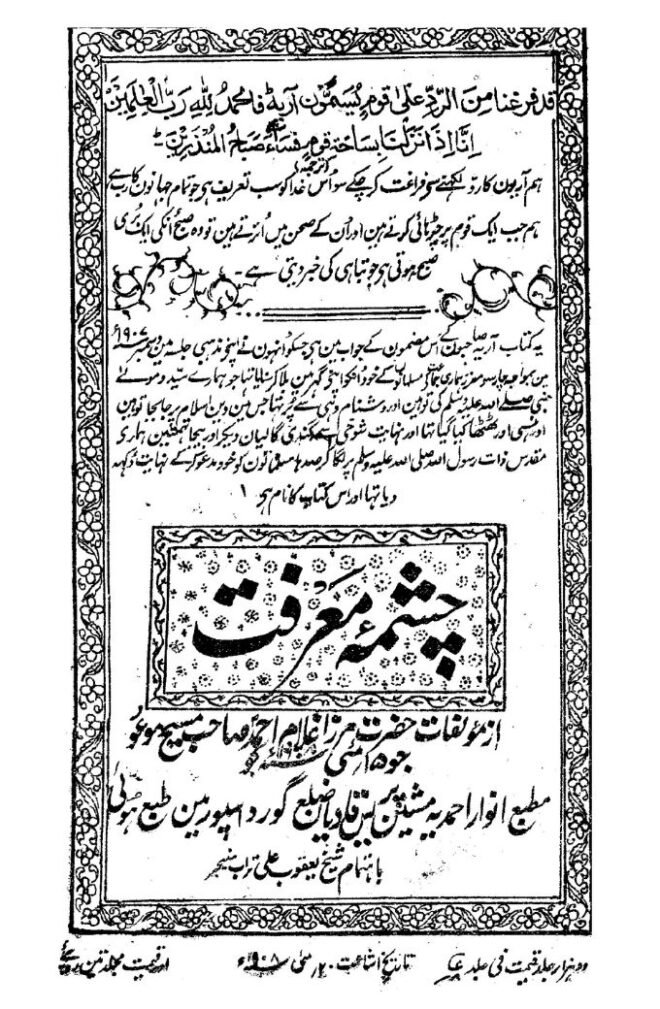 قد فرغنا من الردّ علیٰ قومٍ یُسمّون آریہ فالحمدُ للهِ ربِّ العٰلمین
اِنَّا اِذَا نَزَلْنَا بِسَاحَةِ قَومٍ فَسَاءَ صَبَاحُ المُنذَرِیْنَ
ترجمہ
ہم آریون کا ردّ لکھنے سے فراغت کر چکے سو اُس خدا کو سب تعریف ہے جو تمام جہانون کا رب ہے
ہم جب ایک قوم پر چڑہائی کرتے ہین اور اُن کے صحن میں اُترتے ہین تو وہ صبح اُنکی ایک بُری
صبح ہوتی ہے جو تباہی کی خبر دیتی ہے۔
یہ کتاب آریہ صاحبون کے اُس مضمون کے جواب مین ہی جسکو اُنہون نے اپنے مذہبی جلسہ مین دسمبر ۱۹۰۷ء
مین بمواجہ چارسو معزز ہماری جماعت کے مسلمانون کے خود اُنکو اپنے گہر مین بلا کر سنایا تہا جو ہمارے سیّد و مولےٰ
نبی صلے اللہ علیہ وسلم کی توہین اور دشنام دہی سے پُر تہا جس مین دین اسلام پر جا بجا توہین
اور ہنسی اور ٹھٹھا کیا گیا تہا اور نہایت شوخی سے گندی گالیان دیکر اور بیجا تہمتین ہماری
مقدس ذات رسول اللہ صلی اللہ علیہ وسلم پر لگا کر صدہا مسلمانون کو خود مدعو کرکے نہایت دُکہہ
دیا تہا اور اس کتاب کا نام ہی
چشمۂ معرفت
از مؤلفات حضرت مرزا غلام احمد صاحب مسیح موعود
جو ۱۵ مئی ۱۹۰۸ء کو
مطبع انوار احمدیہ مشین پریس قادیان ضلع گورداسپور مین طبع ہوئی
باہتمام شیخ یعقوب علی تراب منیجر
دو ہزار جلد قیمت فی جلد
تاریخ اشاعت ۲۰ مئی ۱۹۰۸ء
اور قیمت مجلد تین